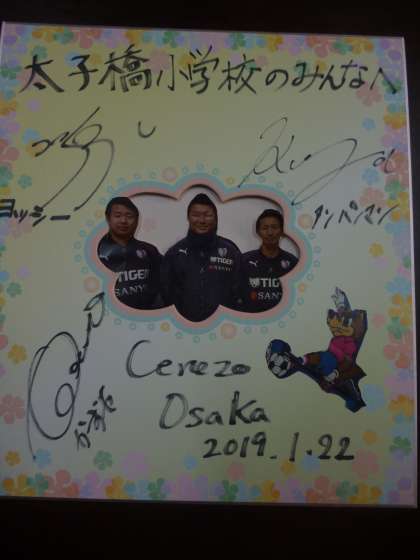 太子橋小学校のみんなへ
ヨッシー
アンパンマン
TIGER
SANYO
TIGER
SANYO
Cerezo
Osaka
2019.1.22